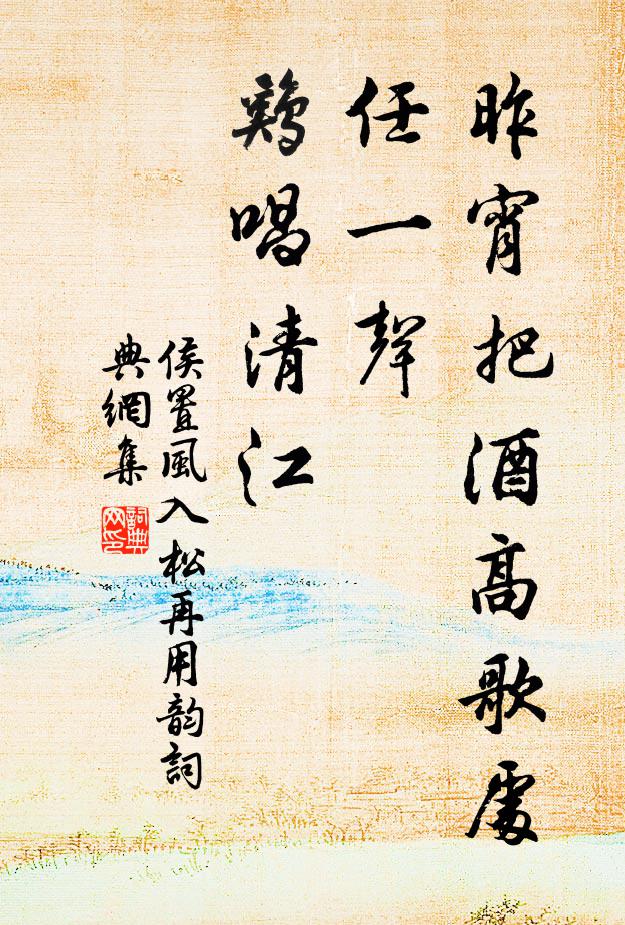 昨宵把酒高歌處
任一聲
鷄唱清江
侯置風入松再用韵詞
典網集
詞典
网印